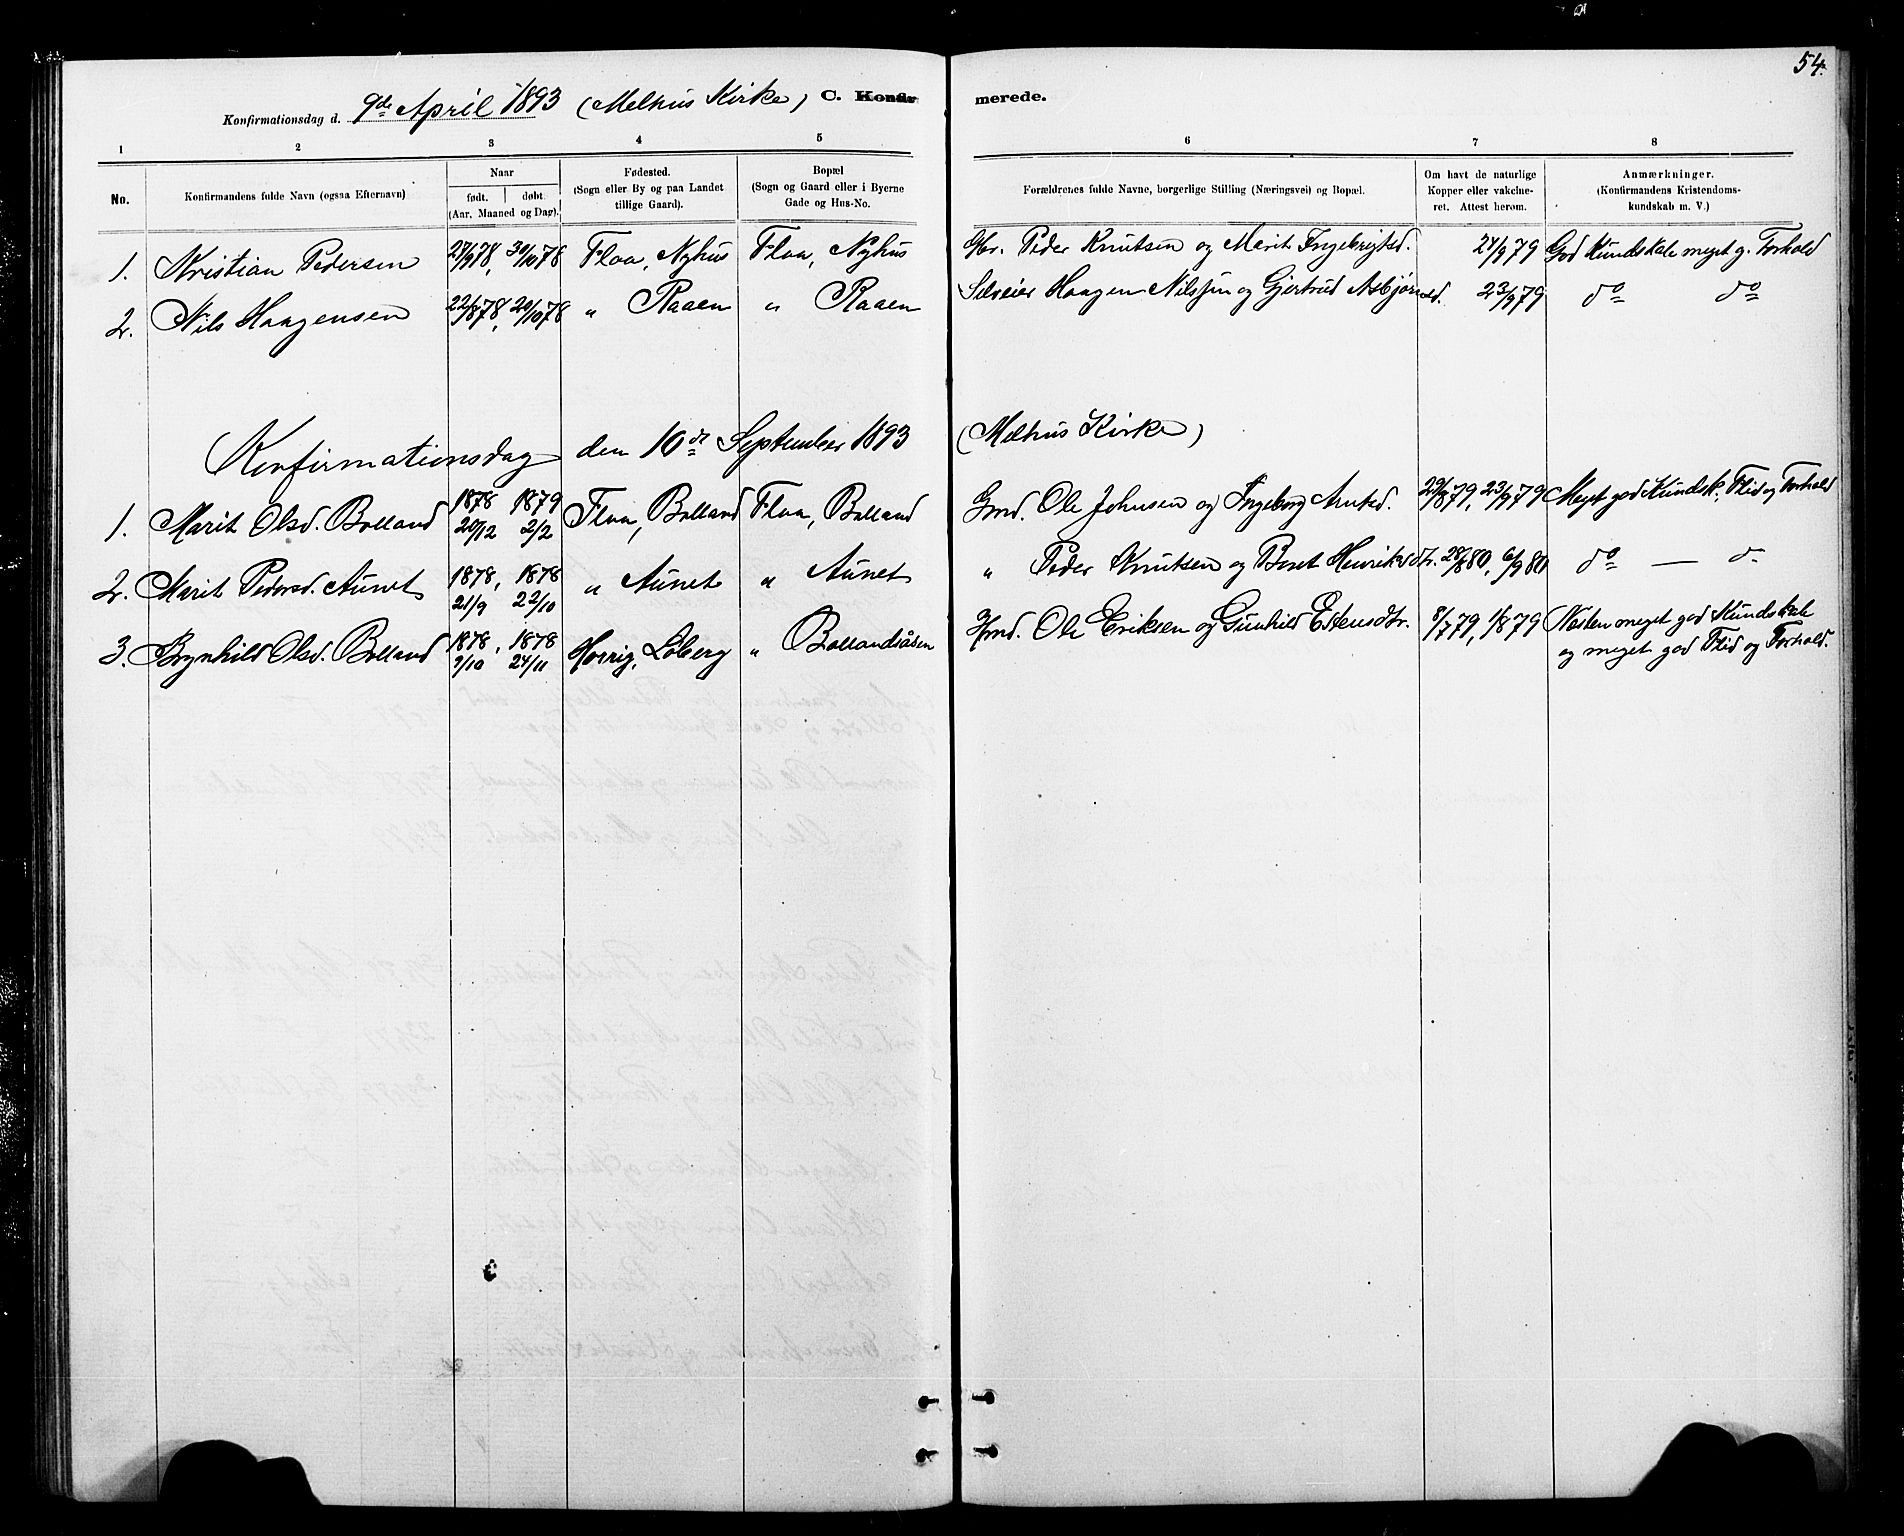 54.
Konfirmationsdag d. 9de April 1893 (Melhus Kirke) C. Konfirmerede.
1 2 3 4 5 6 7 8
No. Konfirmandens fulde Navn (ogsaa Efternavn) Naar født. døbt. (Aar, Maaned og Dag). Fødested. (Sogn eller By og paa Landet tillige Gaard). Bopæl (Sogn og Gaard eller i Byerne Gade og Hus-No. Forældrenes fulde Navne, borgerlige Stilling (Næringsvei) og Bopæl. Om havt de naturlige Kopper eller vakcineret. Attest herom. Anmærkninger. (Konfirmandens Kristendomskundskab m. V.)
1. Kristian Pedersen 27/9 78, 31/10 78 Flaa, Nyhus Flaa, Nyhus Gbr. Peder Knutsen og Marit Ingebrigtsd. 24/9 79 God Kundskab meget g. Forhold
2. Nils Haagensen 22/8 78, 20/10 78 " Raaen " Raaen Selveier Haagen Nilssen og Gjertrud Asbjørnsd. 23/9 79 do do
Konfirmationsdag den 10de September 1893 (Melhus Kirke)
1. Marit Olsd. Bolland 1878 20/12 1879 2/2 Flaa, Bolland Flaa, Bolland Gmd. Ole Johnsen og Ingeborg Arntsd. 22/8 79, 23/9 79 Meget god Kundsk. Flid og Forhold
2. Marit Pedersd. Aunet 1878, 21/9 1878 22/10 " Aunet " Aunet " Peder Knutsen og Beret Henriksdtr. 28/8 80, 6/9 80 do — do
3. Brynhild Olsd. Bolland 1878, 9/10 1878 24/11 Horrig, Løberg " Bollandsåsen Hmd. Ole Eriksen og Gunhild Estensdtr. 8/7 79, 1/8 79 Næsten meget god Kundskab
og meget god Flid og Forhold.